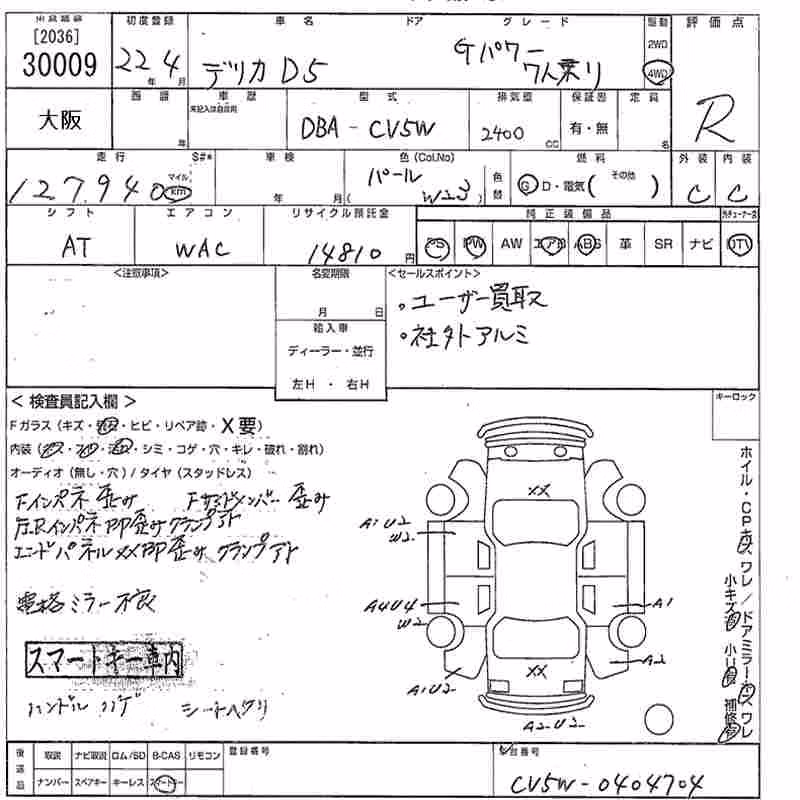 [2036]
30009
初度登録
22年 4月
車名
デリカ D5
ドア
グレード
Gパワー
7人乗り
駆動
2WD
4WD
評価点
R
大阪
西暦
年
車歴
未記入は自家用
型式
DBA-CV5W
排気量
2400
CC
保証書
有・無
定員
名
走行
S#*
127,940
マイル
km
車検
年 月
色(Col,No)
パール
(W23)
色替
燃料
G D・電気( その他 )
外装
C
内装
C
シフト
AT
エアコン
WAC
リサイクル預託金
14810円
純正装備品
PS PW AW エアB ABS 革 SR ナビ TV
<注意事項>
名変期限
月 日
輸入車
ディーラー・並行
左H・右H
<セールスポイント>
。ユーザー買取
。社外アルミ
<検査員記入欄>
Fガラス(キズ・ ・ヒビ・リペア跡・X要)
内装( ・ ・ ・シミ・コゲ・穴・キレ・破れ・割れ)
オーディオ(無し・穴)/タイヤ(スタッドレス)
Fインパネ歪み Fサイドメンバー歪み
Rインパネ 歪み クランプアト
エンドパネルXX 歪み クランプアト
電格ミラー不良
スマートキー車内
ハンドル ハゲ シートヘタリ
キーロック
XX
A1U2
W2
A4U4
W2
A1U2
A1
A2
XX
A2U2
ホイル・CPキズ ワレ/ドアミラーキズ ワレ
小キズ有 小U有 補修有
後送品
取説 ナビ取説 ロム/SD B-CAS リモコン
ナンバー スペアキー キーレス スマートキー
登録番号
車台番号
CV5W-0404704